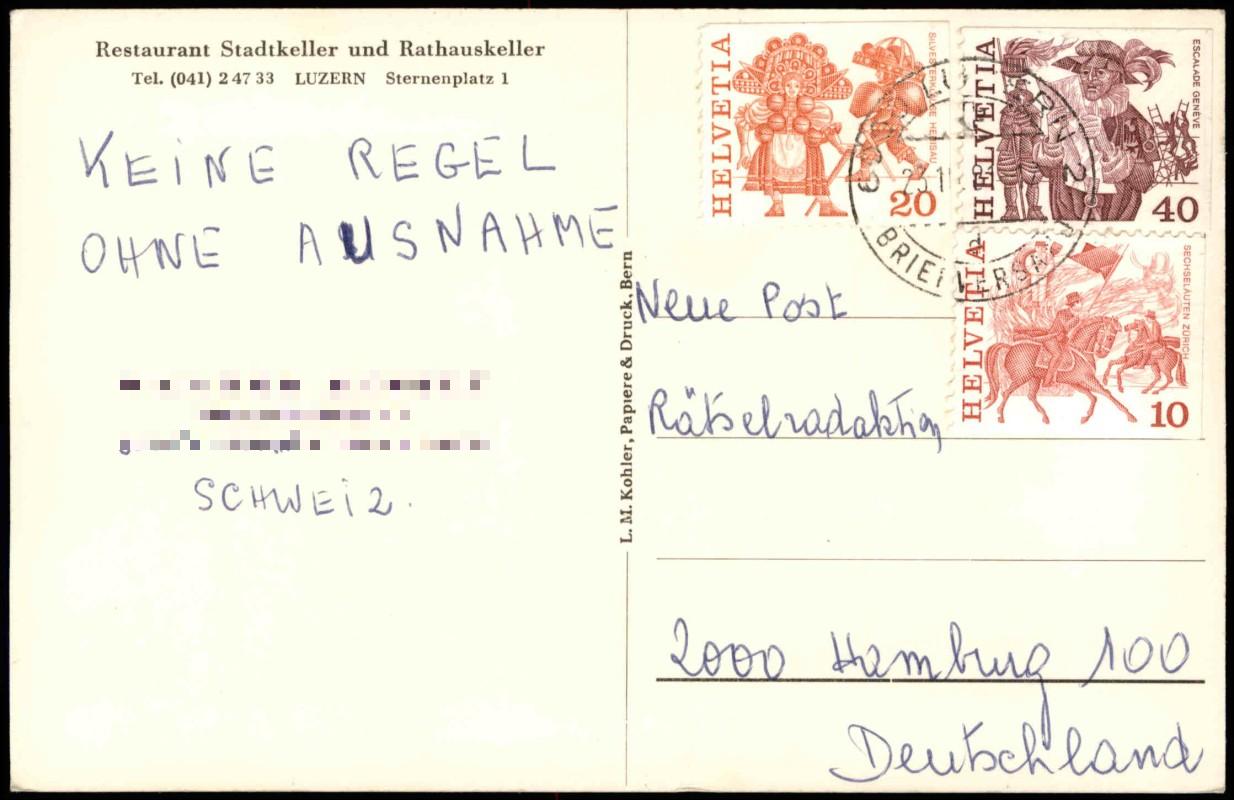 Restaurant Stadtkeller und Rathauskeller
Tel. (041) 2 47 33 LUZERN Sternenplatz 1
KEINE REGEL
OHNE AUSNAHME
SCHWEIZ.
L. M. Kohler, Papiere & Druck, Bern
HELVETIA
SILVESTERKLÄUSE HERISAU
20
HELVETIA
ESCALADE GENÈVE
40
HELVETIA
SECHSELÄUTEN ZÜRICH
10
LUZERN 2
BRIEFVERSAND
Neue Post
Rätselradaktion
2000 Hamburg 100
Deutschland